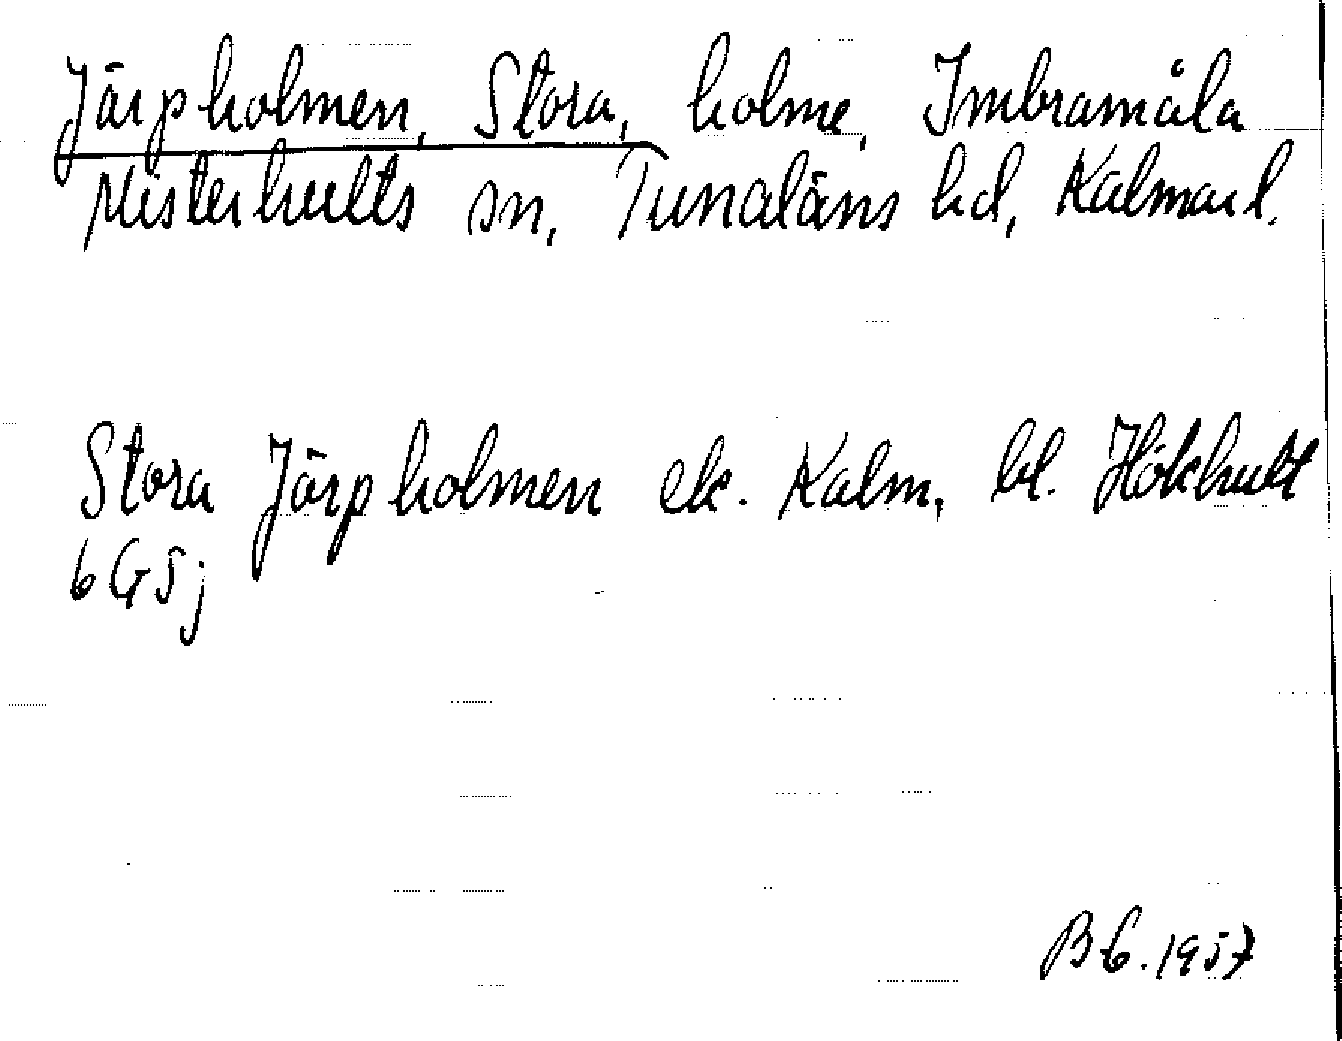 Järpholmen, Stora, holme, Imbramåla
Misterhults sn, Tunaläns hd, Kalmar l.
Stora Järpholmen ek. Kalm. bl. Hökhult
6 G 5 j
B G. 1957